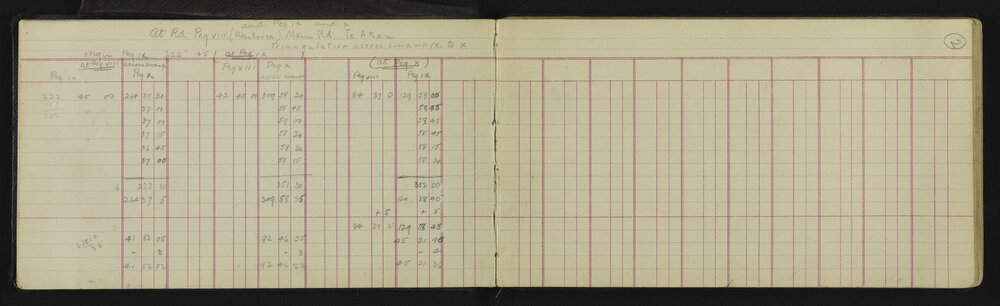 and Peg IX and X
At Rd Peg VIII Main Rd Te Akau
Triangulation across swamp IX to X
origin Peg IX 222° 45' (at Peg IX (at Peg X)
at Peg VIII across swamp Peg VIII Peg X Peg VIII Peg IX
Peg IX Peg X across swamp
222 45 00 264 37 30 42 45 00 309 58 20 84 37 0 129 59 00
37 00 58 45 58 45
37 00 59 00 58 45
37 15 58 20 58 45
36 05 58 20 58 15
37 00 58 15 58 20
6 222 30 351 30 352 00
264 37 5 309 58 35 129 58 40
+ 5 + 5
84 37 5 129 58 45
41 52 05 92 46 25 45 21 40
- 3 - 3 - 4
41 52 02 92 46 22 45 21 36